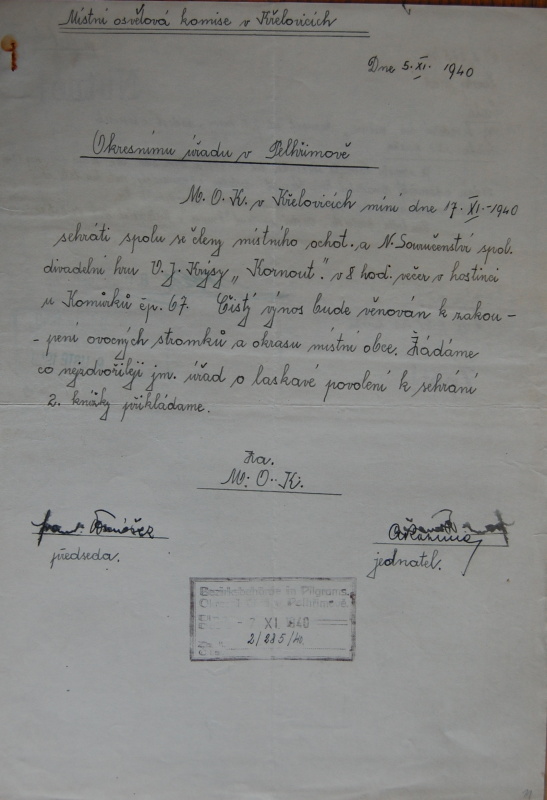 Místní osvětová komise v Křelovicích
Dne 5. XI. 1940
Okresnímu úřadu v Pelhřimově
M. O. K. v Křelovicích míní dne 17. XI. 1940
sehráti spolu se členy místního ochot. a N. Souručenství spol.
divadelní hru V. J. Krýsy „Kornout". v 8 hod. večer v hostinci
u Komůrků čp. 67. Čistý výnos bude věnován k zakou-
-pení ovocných stromků a okrasu místní obce. Žádáme
co nejzdvořileji jm. úřad o laskavé povolení k sehrání
2. knížky přikládáme.
Za.
M. O. K.
předseda.
jednatel.
Bezirksbehörde in Pilgrams
Okresní úřad v Pelhřimově
XI 1940
2/285/40.